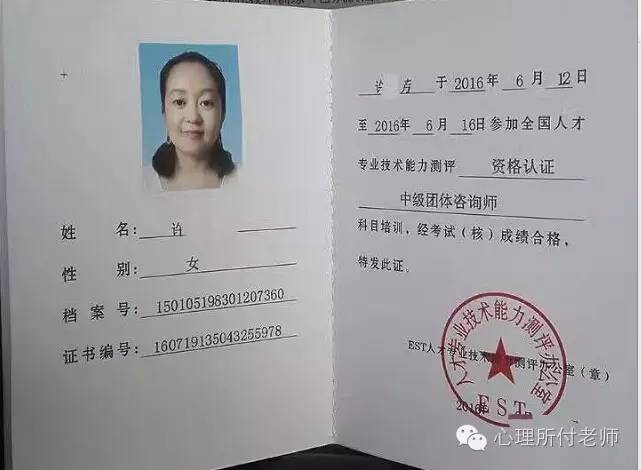 姓 名：许
性 别：女
档案号：150105198301207360
证书编号：160719135043255978
于2016年 6月 12日
至2016年 6月 16日参加全国人才
专业技术能力测评 资格认证
中级团体咨询师
科目培训，经考试（核）成绩合格，
特发此证。
人才专业技术能力测评办公室
EST人才专业技术能力测评办公室（章）
EST
2016年
心理所付老师